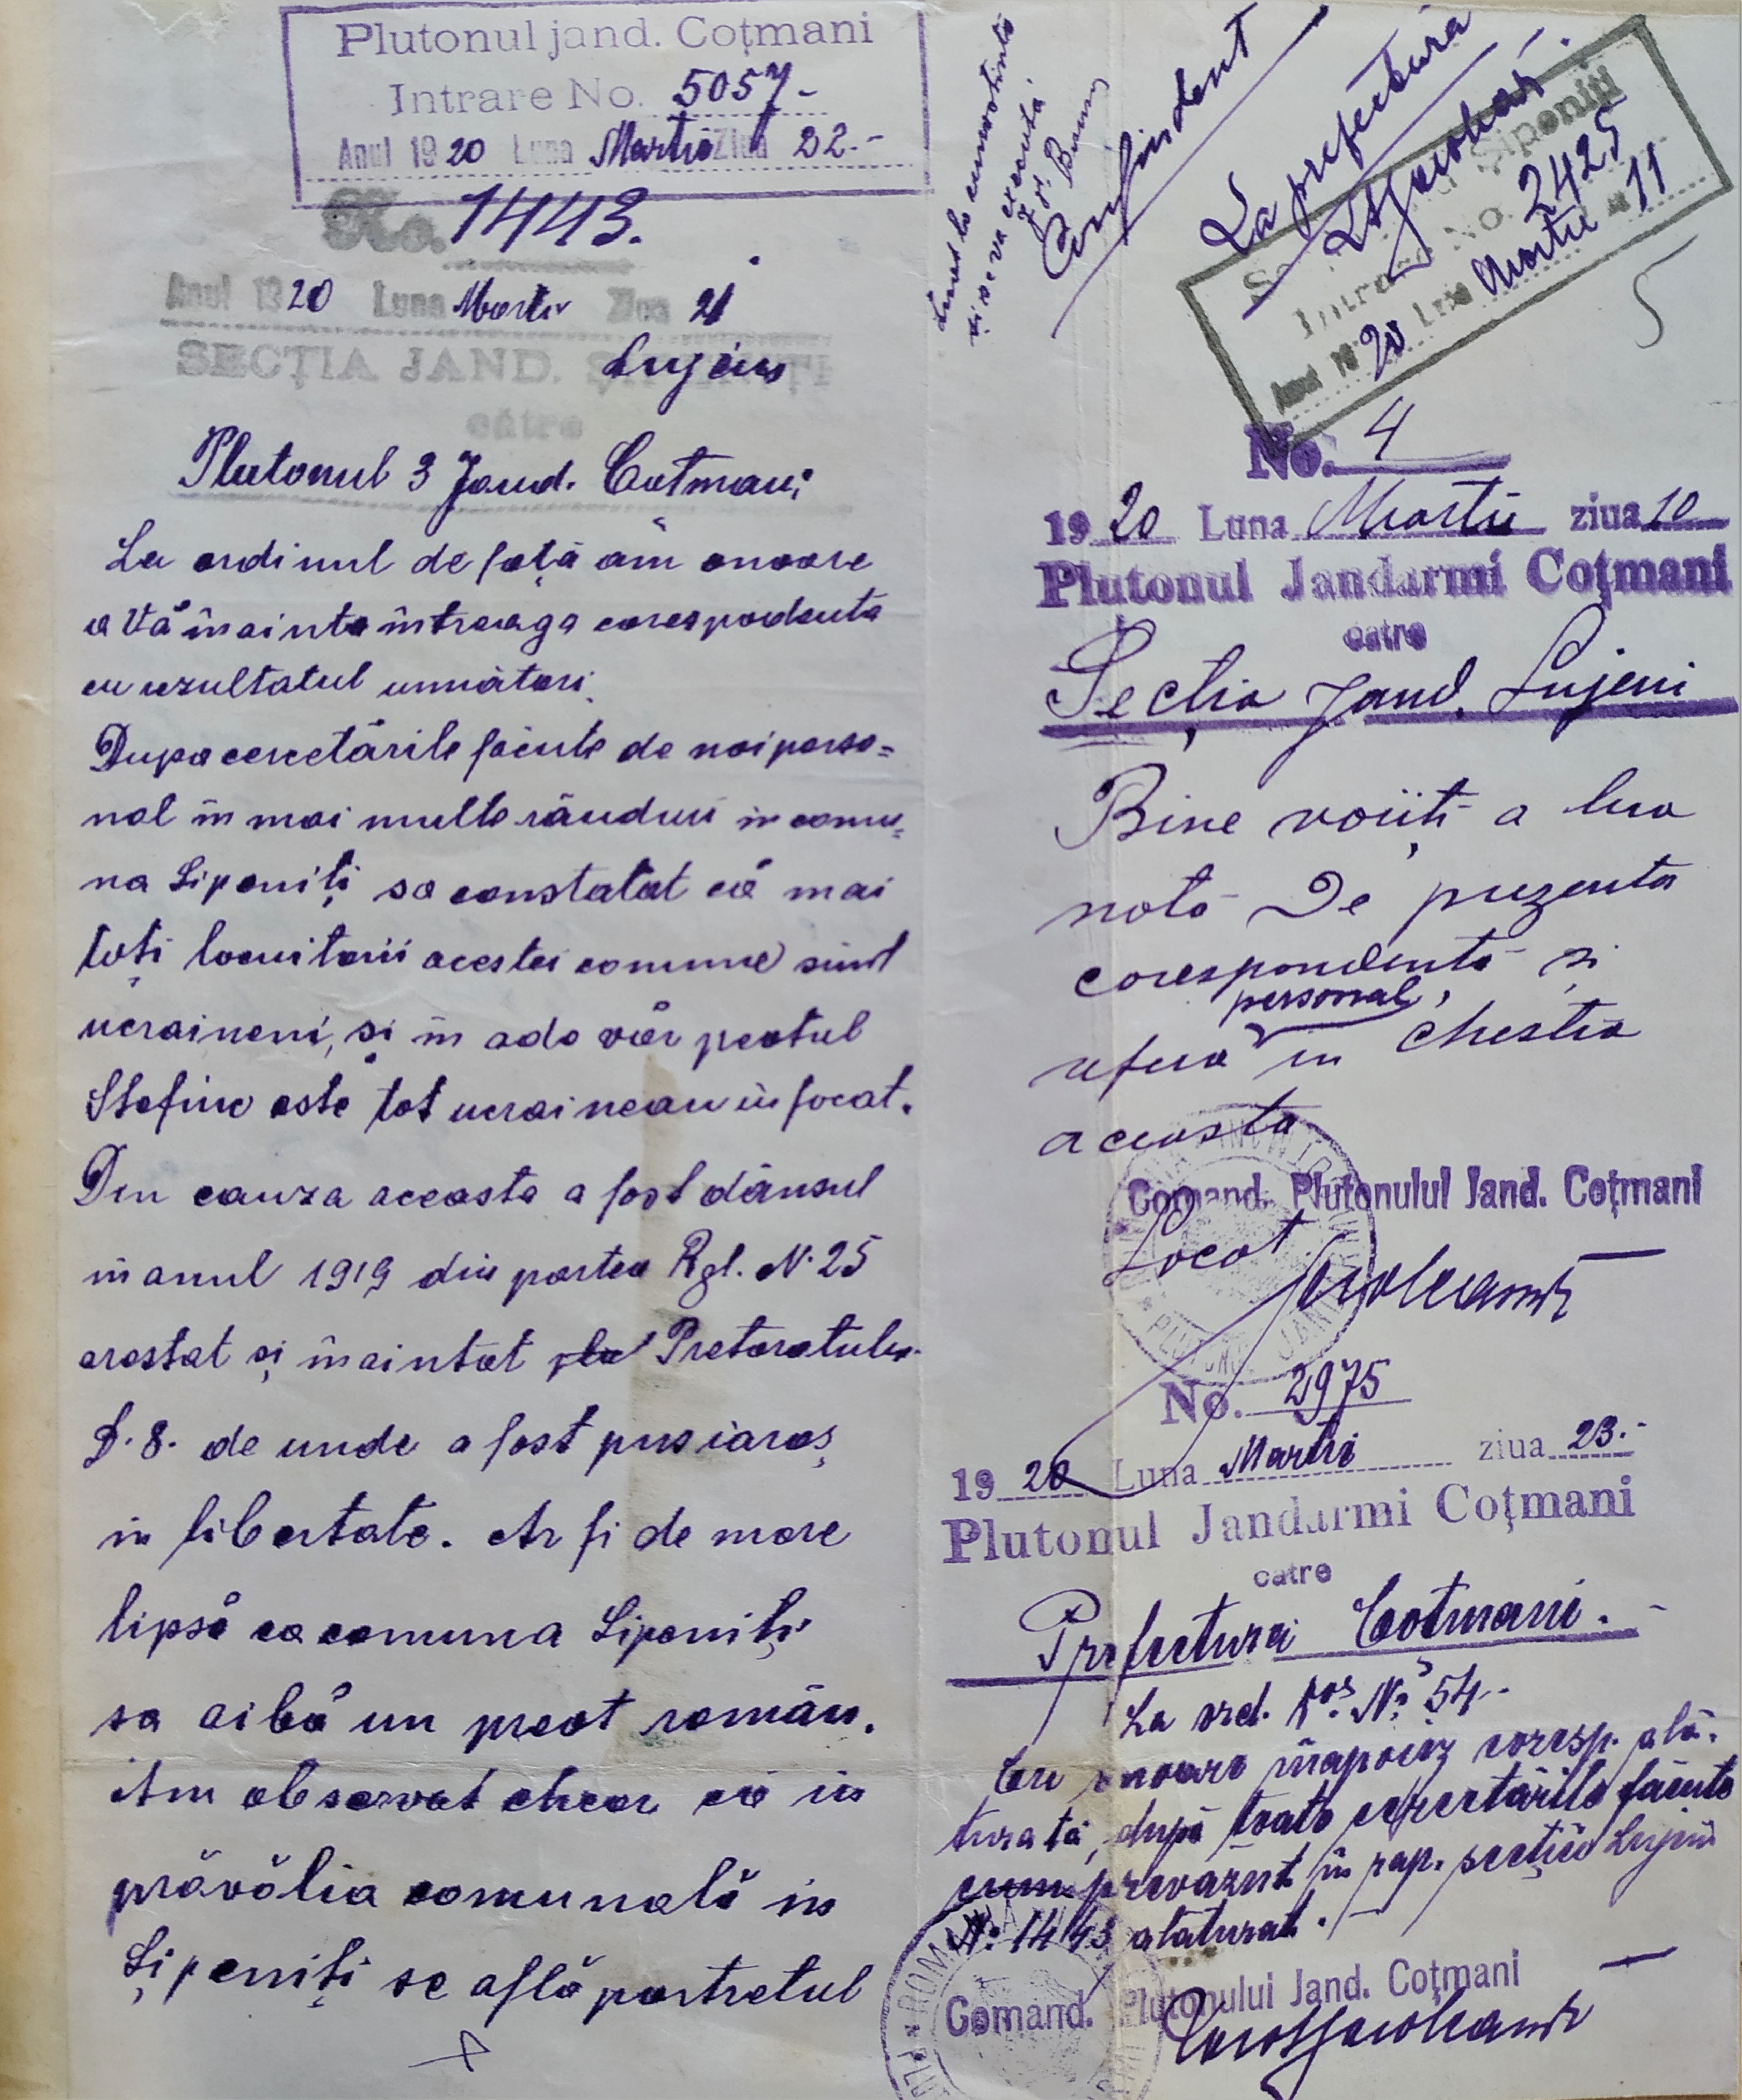 Plutonul jand. Coțmani
Intrare No. 5057-
Anul 1920 Luna Martie Ziua 22.-
No. 1443.
Anul 1920 Luna Martie Ziua 21
SECȚIA JAND. ȘIPENIȚI
Lujeni
către
Plutonul 3 Jand. Cotmani
La ordinul de față am onoare
a Vă înainta întreaga corespodenta
cu rezultatul următori.
Dupa cercetările făcute de noi perso=
nal în mai multe rânduri in comu=
na Șipeniți sa constatat că mai
toți locuitorii acestei comune sunt
ucraineni, și în adevăr preotul
Stefiuc este tot ucrainean înfocat.
Din cauza aceasta a fost dânsul
în anul 1919 din partea Rgl. N. 25
arestat și înaintat la Pretoratulu
D. 8. de unde a fost pus iaraș
in libertate. Ar fi de mare
lipsă ca comuna Șipeniți
sa aibă un preot român.
Am observat chear că in
prăvălia comunală in
Șipeniți se află portretul
Luat la cunoștință
și se va executa
Confident
La prefectura
Intrare No. 2425
Anul 1920 Luna Martie 11
5
No. 4
1920 Luna Martie ziua 10
Plutonul Jandarmi Coțmani
catre
Secția Jand. Lujeni
Bine voiiți a lua
notă De prezenta
corespondentă și
personal,
refera in chestia
aceasta
Comand. Plutonulul Jand. Coțmani
Locot
No. 2975
1920 Luna Martie ziua 23.-
Plutonul Jandarmi Coțmani
catre
Prefectura Cotmani.
La ord. Nos. No. 54-
Cu onoare înapoiez coresp. ală-
turată, după toate cercetările făcute
cum prevăzut în rap. secției Lujeni
N: 1443 alăturat.
Comand. Plutonului Jand. Coțmani